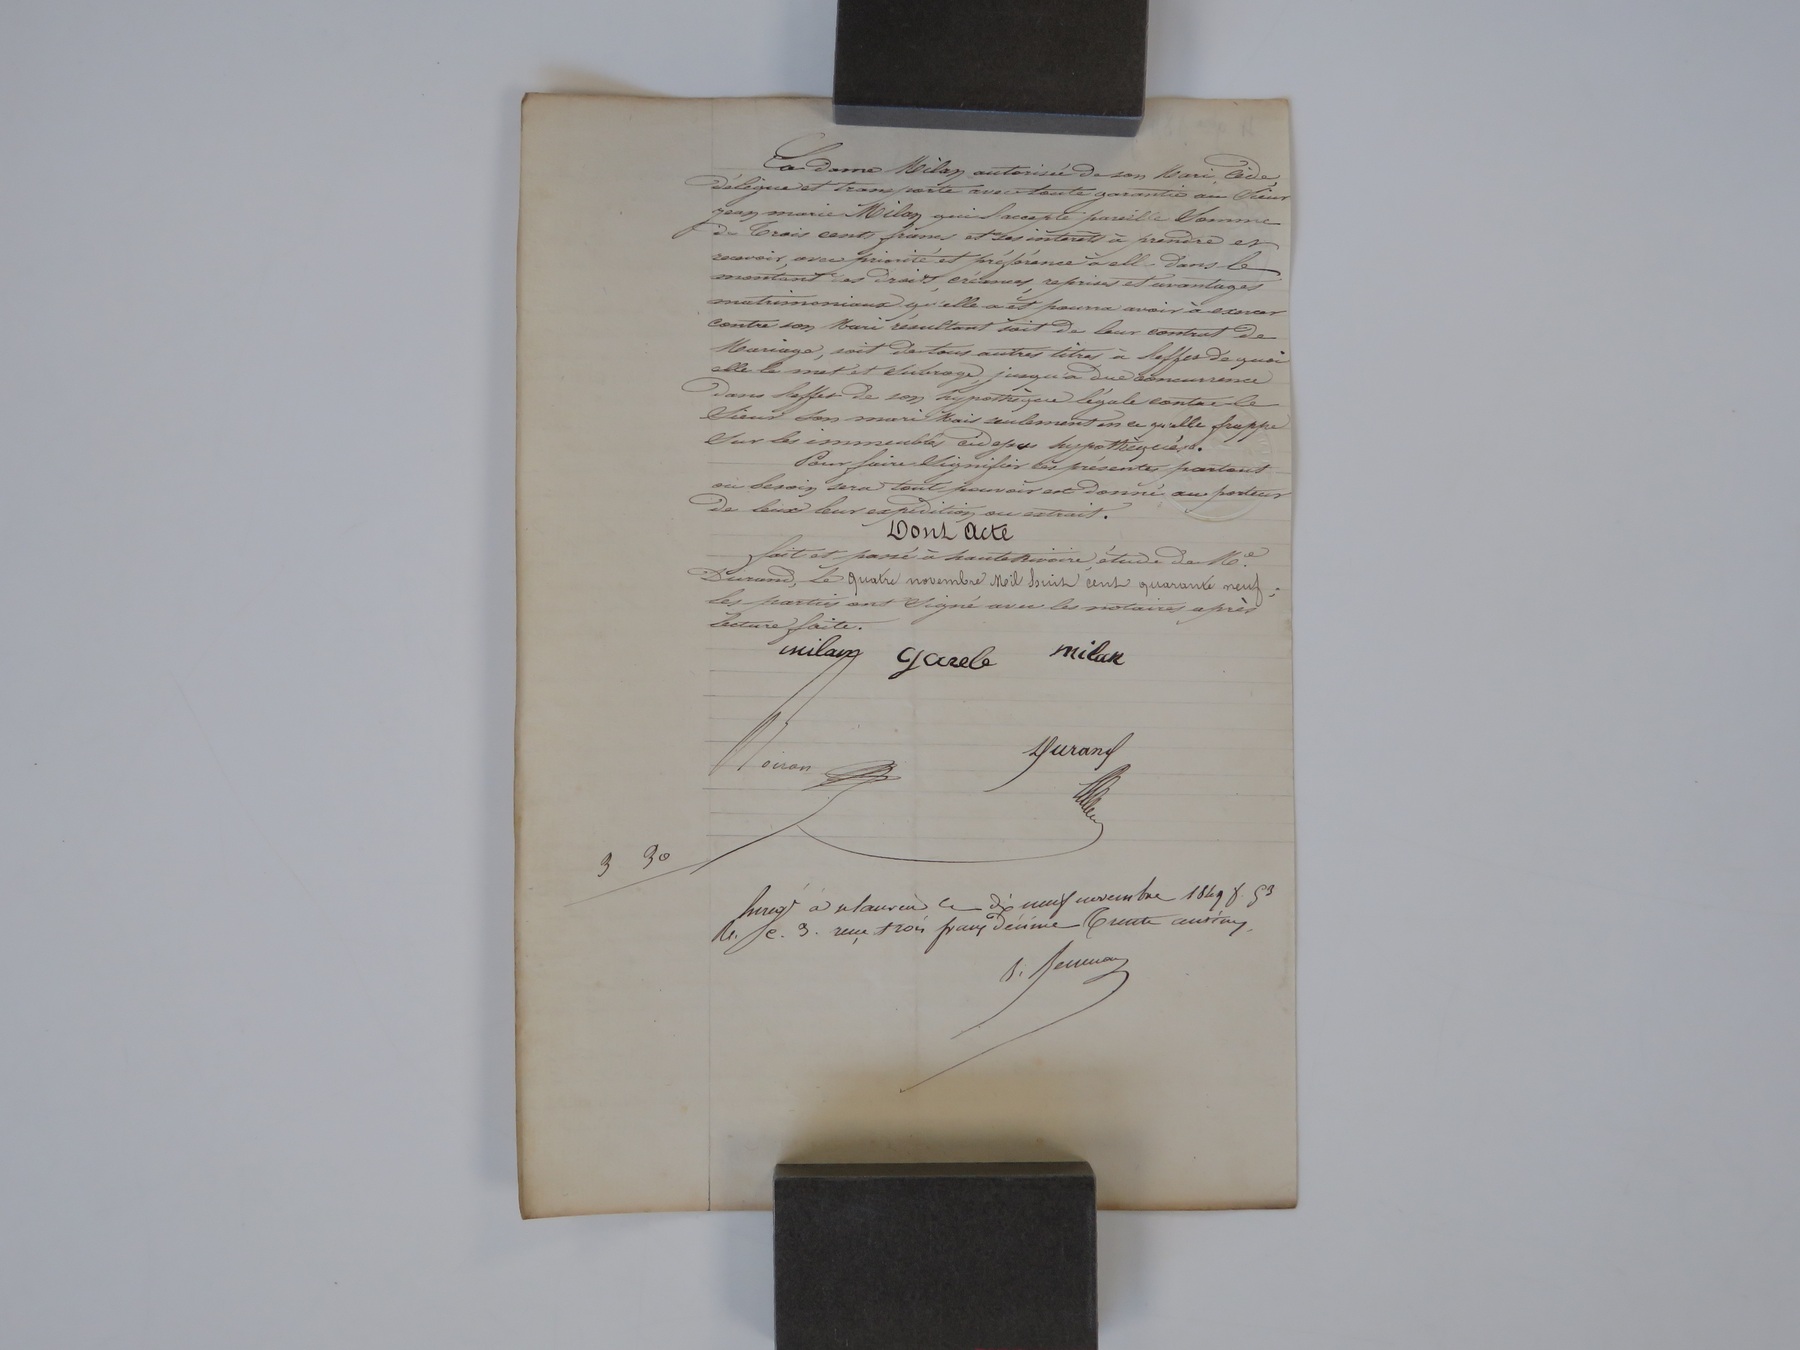 La dame Milan autorisée de son Mari, Cède
délègue et transporte avec toute garantie au Sieur
jean marie Milan qui l'accepte pareille Somme
de Trois cents francs et ses intérêts à prendre et
recevoir avec priorité et préférence à elle dans le
montant des droits, créances, reprises et avantages
matrimoniaux qu'elle a et pourra avoir à exercer
contre son Mari résultant soit de leur contrat de
Mariage, soit de tous autres titres à l'effet de quoi
elle le met et Subroge jusqu'à due concurrence
dans l'effet de son hypothèque légale contre le
Sieur Son mari Mais seulement en ce qu'elle frappe
Sur les immeubles ci-dessus hypothèqués.
Pour faire Signifier les présentes partout
où besoin sera tout pouvoir est donné au porteur
de leur expédition ou extrait.
Dont Acte
fait et passé à hauteRivoire, étude de Me
Durand, le quatre novembre Mil huit cent quarante neuf;
les parties ont Signé avec les notaires après
lecture faite.
milan gazele milan
Noiron Durand
3 30
Enregé à st Laurent le dix neuf novembre 1849 f. 53
Ro. c. 3. reçu trois francs décime Trente centimes